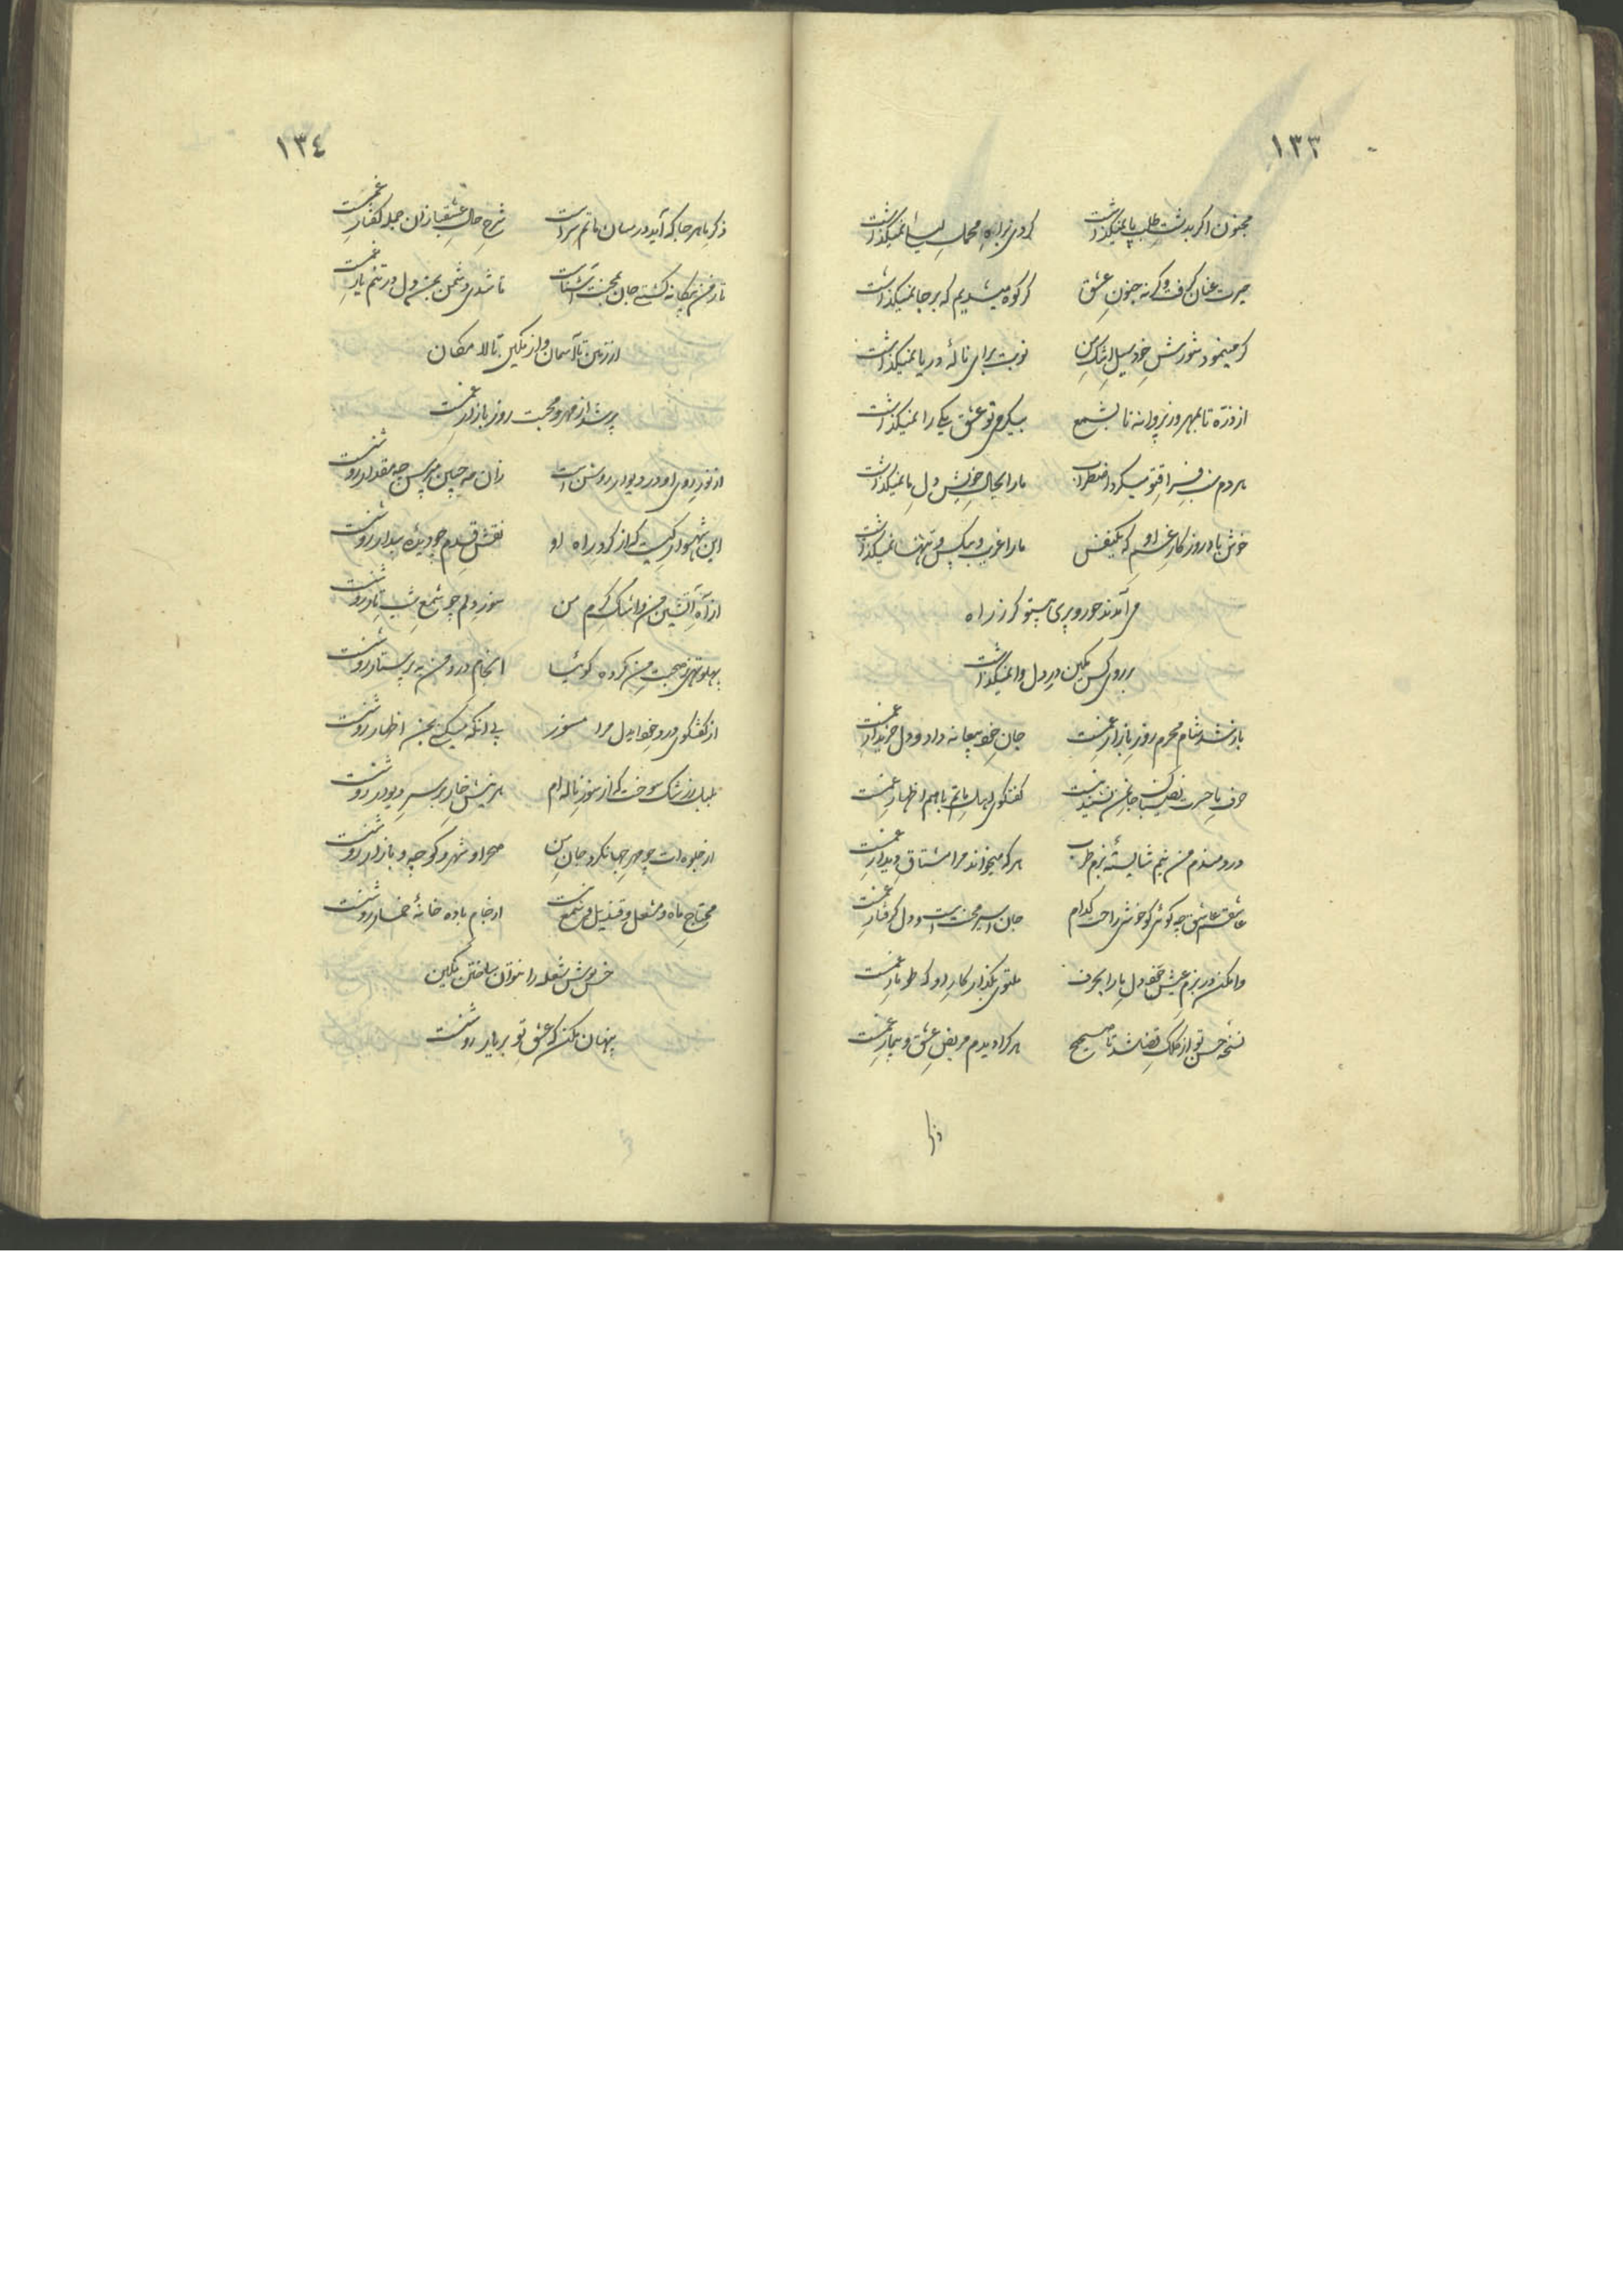 ١٣٣
مجنون اگر بدشت طلب پا نمیگذاشت کردی براه محمل لیلا نمیگذاشت
حیرت عنان گرفت وگرنه جنون عشق گر کوه میشدیم که بر جا نمیگذاشت
گر مینمود شورش خود سیل اشک من نوبت برای نالهٔ دریا نمیگذاشت
از ذره تا بمهر و ز پروانه تا بشمع بیگرمی تو عشق یکی را نمیگذاشت
هر دم فراق تو میکرد اضطراب ما را بحال خویش دل ما نمیگذاشت
خوش باد روزگار غم او که یکنفس ما را غریب و بیکس و تنها نمیگذاشت
می آمدند حور و پری گر ز راه
بر روی کس نگین در دل وا نمیگذاشت
باز شد شام محرم روز بازار غمست جان خود بیعانه داد و دل خریدار غمست
حرف با حسرت گفتگوی اهل ماتم با هم اظهار غمست
دردمندم من نیم شایستهٔ بزم طرب هر که میخواند مرا مشتاق دیدار غمست
عاشقم عاشق چه گوئی کو خوشی راحت کدام جان اسیر محنت است و دل گرفتار غمست
وا مکن در بزم عیش خود دل ما را بحرف ملتوی بگذار کار او که طومار غمست
نسخه حسن تو از کلک قضا شد تا صحیح هر کرا دیدم مریض عشق و بیمار غمست
ذکر
١٣٤
ذکر ما هر جا که آید در میان ماتم سراست شرح حال عشقبازان جمله گفتار غمست
تا ز من بیگانه گشتی جان بمحنت آشناست تا شدی دشمن بمن دل در تنم یار غمست
از زمین تا آسمان و از نگین تا لامکان
پر شد از مهر و محبت روز بازار غمست
از نور روی او در و دیوار روشن است زان مه جبین مپرس چه مقدار روشنست
این شهسوار کیست که از گرد راه او نقش قدم چو دیدهٔ بیدار روشنست
از آه آتشین من و اشک گرم من سوز دلم چو شمع شب تار روشنست
پهلو تهی ز صحبت من کرده گوئیا انجام درد من به پرستار روشنست
از گفتگوی درد خود ایدل مرا مسوز بی آنکه میکنی بمن اظهار روشنست
بلبل ز رشک سوخت که از سوز ناله‌ام هر نیش خار بر سر دیوار روشنست
از جلوه‌ات چو مهر جهان کرد جان من صحرا و شهر و کوچه و بازار روشنست
محتاج ماه و مشعل و قندیل و شمع نیست از جام باده خانهٔ خمار روشنست
خس پوش شعله را نتوان ساختن نگین
پنهان مکن که عشق تو بر یار روشنست